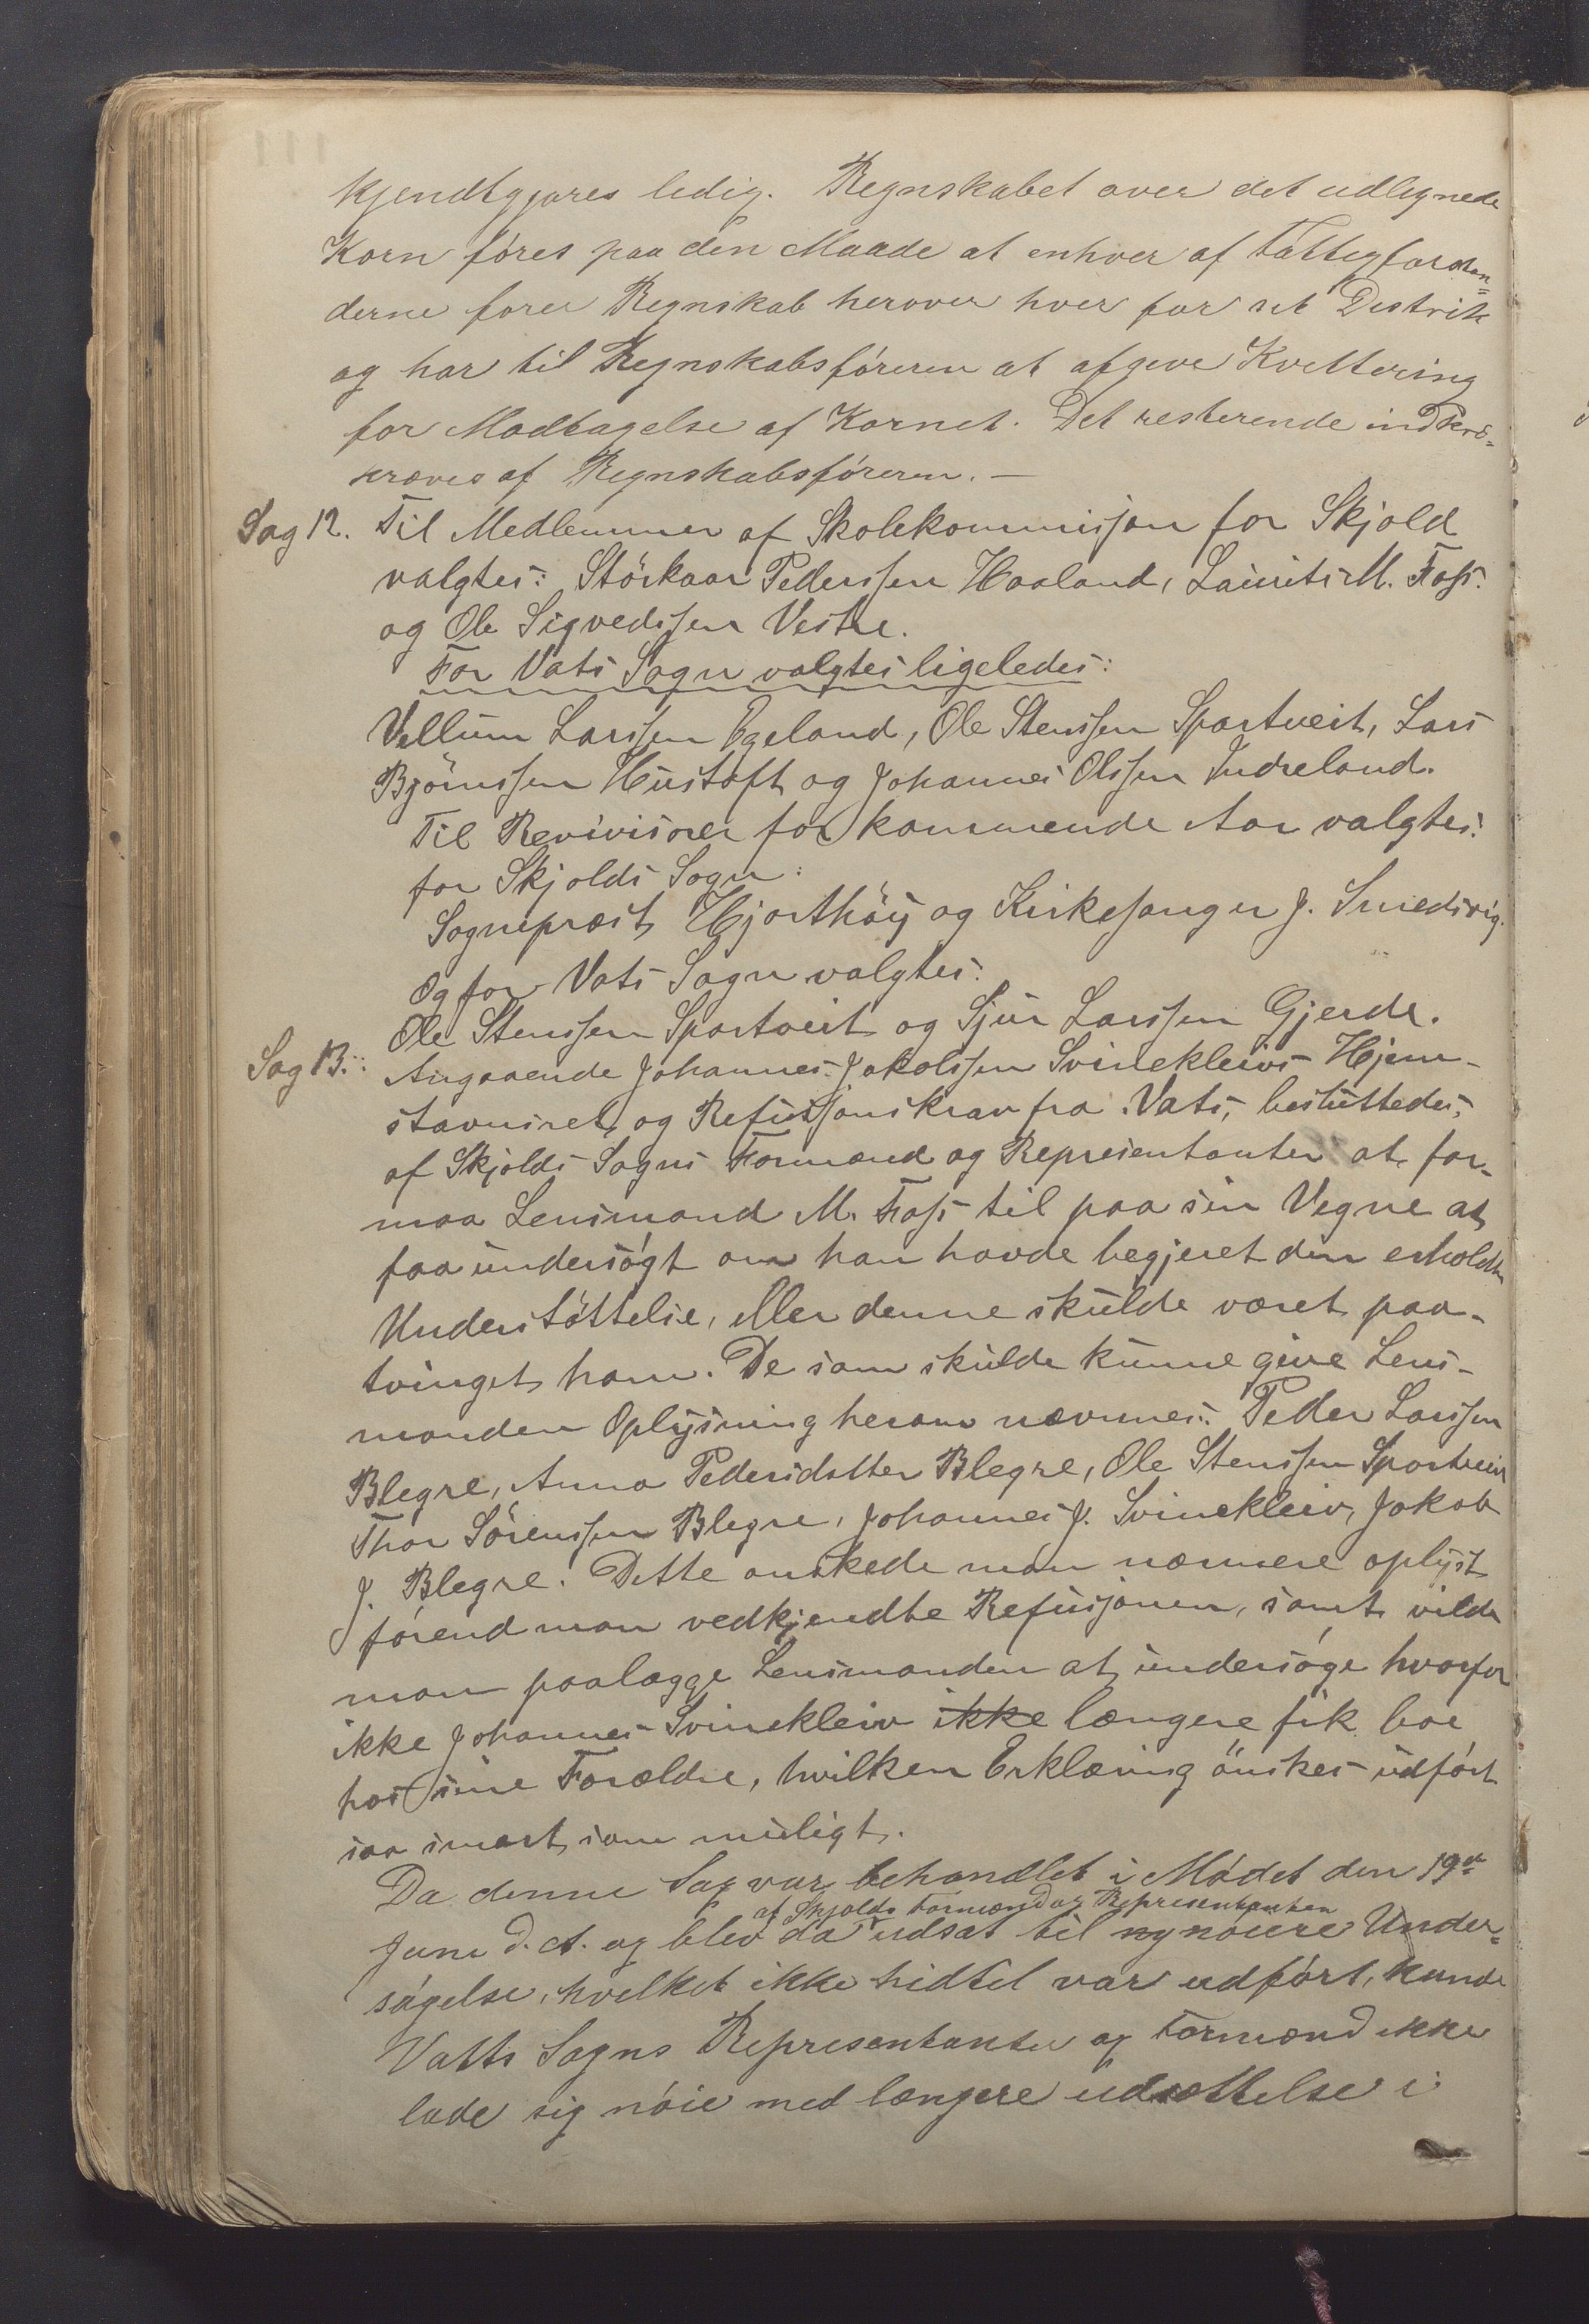 kjendtgjøres ledig. Regnskabet over det udlignede
Korn føres paa den Maade at enhver af Fattigforstan=
derne fører Regnskab herover hver for sit Distrik
og har til Regnskabsføreren at afgive Kvittering
for Modtagelse af Kornet. Det resterende indkræ=
kræves af Regnskabsføreren. —
Sag 12. Til Medlemmer af Skolekommissjon for Skjold
valgtes: Störkaar Pederssen Haaland, Laurits M. Foss.
og Ole Sigvedssen Vestre.
For Vats Sogn valgtes ligeledes:
Vellum Larssen Egeland, Ole Stenssen Sportveit, Lars
Björnssen Hustoft og Johannes Olssen Indreland.
Til Revivisorer for kommende Aar valgtes:
for Skjolds Sogn:
Sogneprest Hjorthöy og Kirkesanger J. Smedsvig.
Og for Vats Sogn valgtes:
Ole Stenssen Sportveit og Sjur Larssen Gjerde.
Sag 13.: Angaaende Johannes Jakobssen Svinekleivs Hjem-
stavnsret og Refusjonskrav fra Vats, besluttedes,
af Skjolds Sogns Formænd og Representanter at for-
maa Lensmand M. Foss til paa sin Vegne at
faa undersøgt om han havde begjeret den erholdte
Understøttelse, eller denne skulde været paa-
tvinget ham. De som skulde kunne give Lens-
manden Oplysning herom nævnnes: Peder Larssen
Blegre, Anna Pedersdatter Blegre, Ole Stenssen Sportveit
Thor Sörenssen Blegre, Johannes J. Svinekleiv, Jakob
J. Blegre. Dette ønskede man nærmere oplyst
førend man vedkjendte Refusjonen, samt vilde
man paalægge Lensmanden at undersøge hvorfor
ikke Johannes Svinekleiv ikke længere fik boe
hos sine Forældre, hvilken Erklæring önskes udført
saa snart som muligt.
Da denne Sag var behandlet i Mødet den 19de
af Skjolds Formænd og Representanter
Juni d. A. og blev da udsat til ny nøiere Under=
søgelse, hvilket ikke hidtil var udført, kunde
Vatts Sogns Representanter og Formænd ikke
lade sig nøie med længere udsættelse i